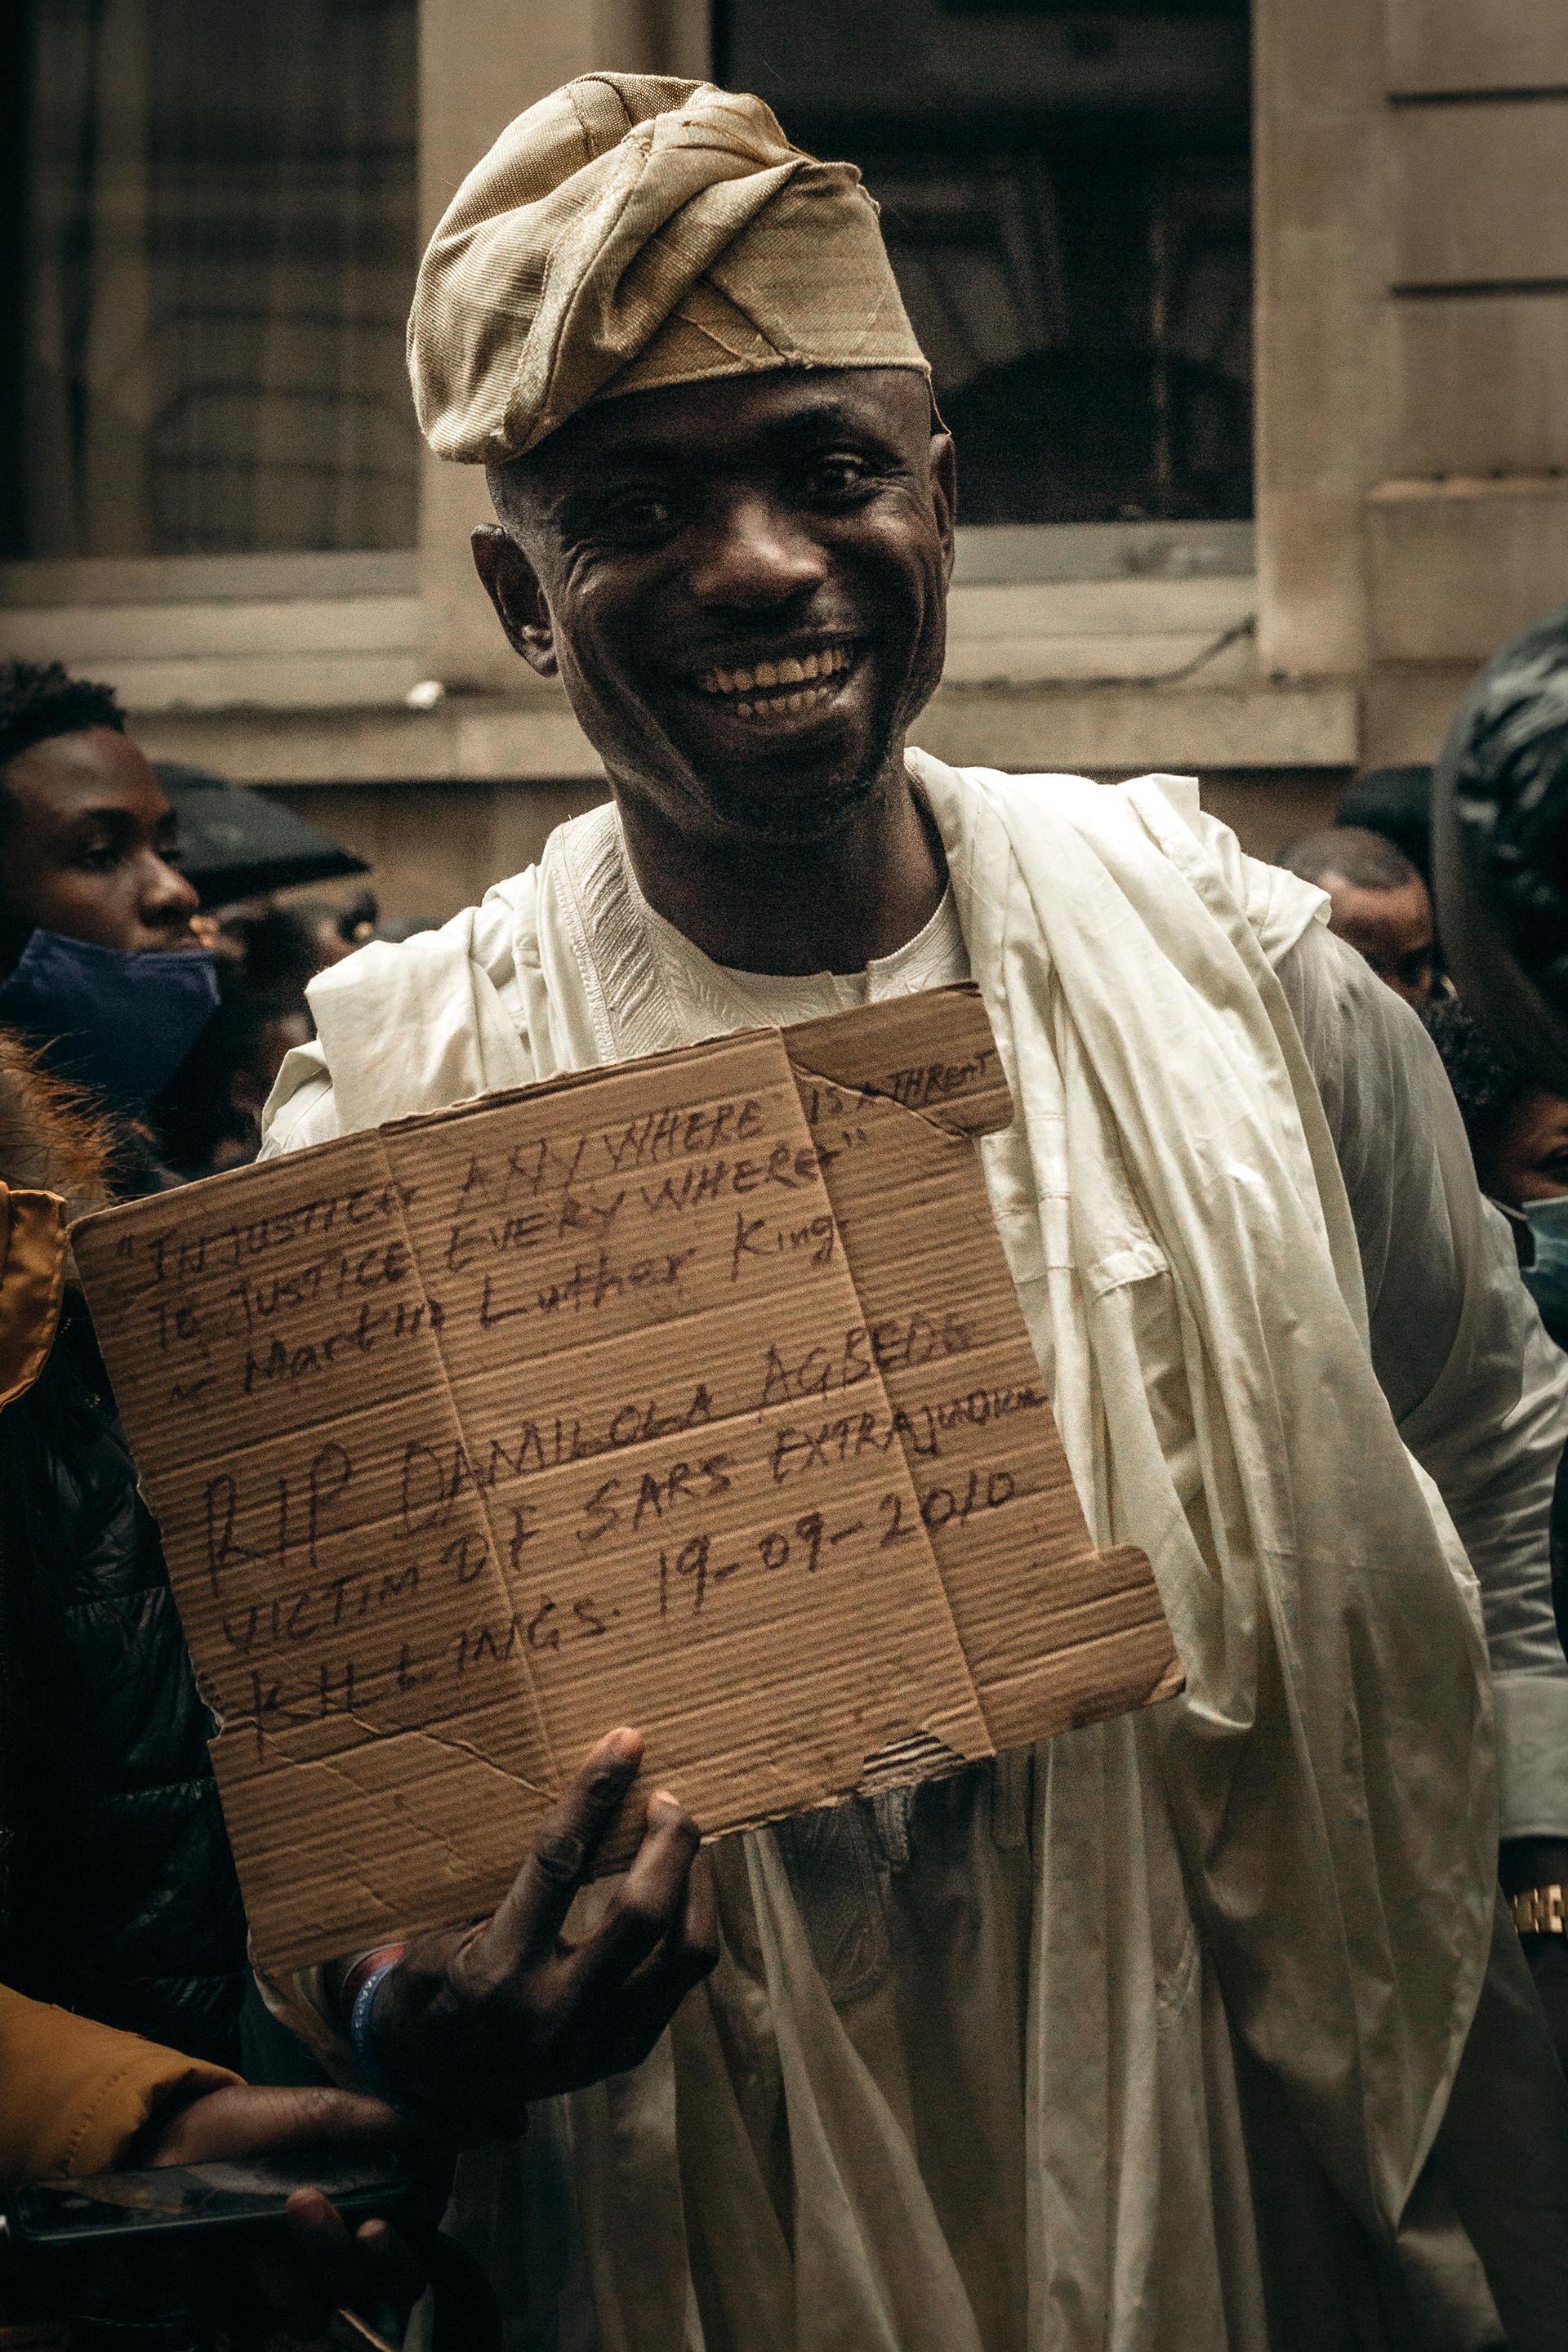 "INJUSTICE ANYWHERE IS A THREAT
TO JUSTICE EVERYWHERE"
~ Martin Luther King
RIP DAMILOLA AGBEDE
VICTIM OF SARS EXTRAJUDICIAL
KILLINGS. 19-09-2010